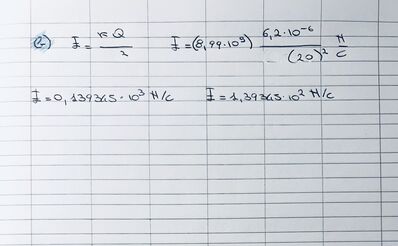 e) E = K Q / 2 E = (8,99·10⁹) 6,2·10⁻⁶ / (20)² N/C
E = 0,139345·10³ N/C E = 1,39345·10² N/C